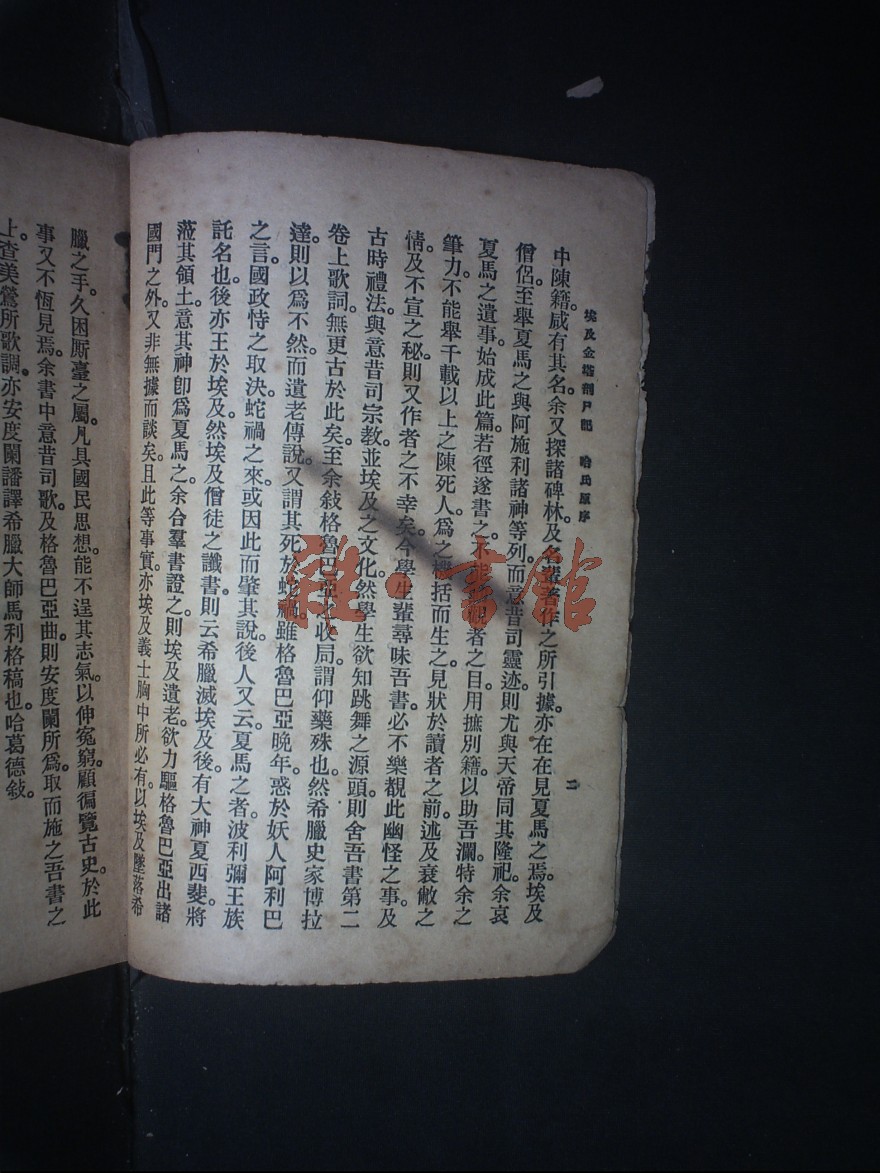 埃及金塔剖尸記　哈氏原序
二
中陳籍。咸有其名。余又探諸碑林。及名輩著作之所引據。亦在在見夏馬之焉。埃及
僧侶。至舉夏馬之與阿施利諸神等列。而意昔司靈迹。則尤與天帝同其隆祀。余哀
夏馬之遺事。始成此篇。若徑遂書之。不觀者之目。用摭別籍。以助吾瀾。特余之
筆力。不能舉千載以上之陳死人。爲之括而生之。見狀於讀者之前。述及衰敝之
情。及不宣之秘。則又作者之不幸矣。今學生輩尋味吾書。必不樂覩此幽怪之事。及
古時禮法。與意昔司宗教。並埃及之文化。然學生欲知跳舞之源頭。則舍吾書第二
卷上歌詞。無更古於此矣。至余敍格魯巴亞之收局。謂仰藥殊也。然希臘史家博拉
達。則以爲不然。而遺老傳說。又謂其死於蛇禍。雖格魯巴亞晚年。惑於妖人阿利巴
之言。國政恃之取決。蛇禍之來。或因此而肇其說。後人又云。夏馬之者。波利彌王族
託名也。後亦王於埃及。然埃及僧徒之讖書。則云希臘滅埃及後。有大神夏西斐。將
蒞其領土。意其神卽爲夏馬之。余合羣書證之。則埃及遺老。欲力驅格魯巴亞出諸
國門之外。又非無據而談矣。且此等事實。亦埃及義士胸中所必有。以埃及墜落希
臘之手。久困厮臺之屬。凡具國民思想。能不逞其志氣。以伸冤窮。顧徧覽古史。於此
事又不恆見焉。余書中意昔司歌。及格魯巴亞曲。則安度闌所爲。取而施之吾書之
上。查美鶯所歌調。亦安度闌譒譯希臘大師馬利格稿也。哈葛德敍。
雜·書館